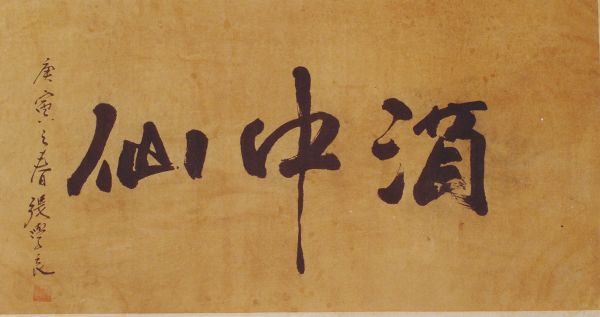 酒中仙
庚寅之春 張學良